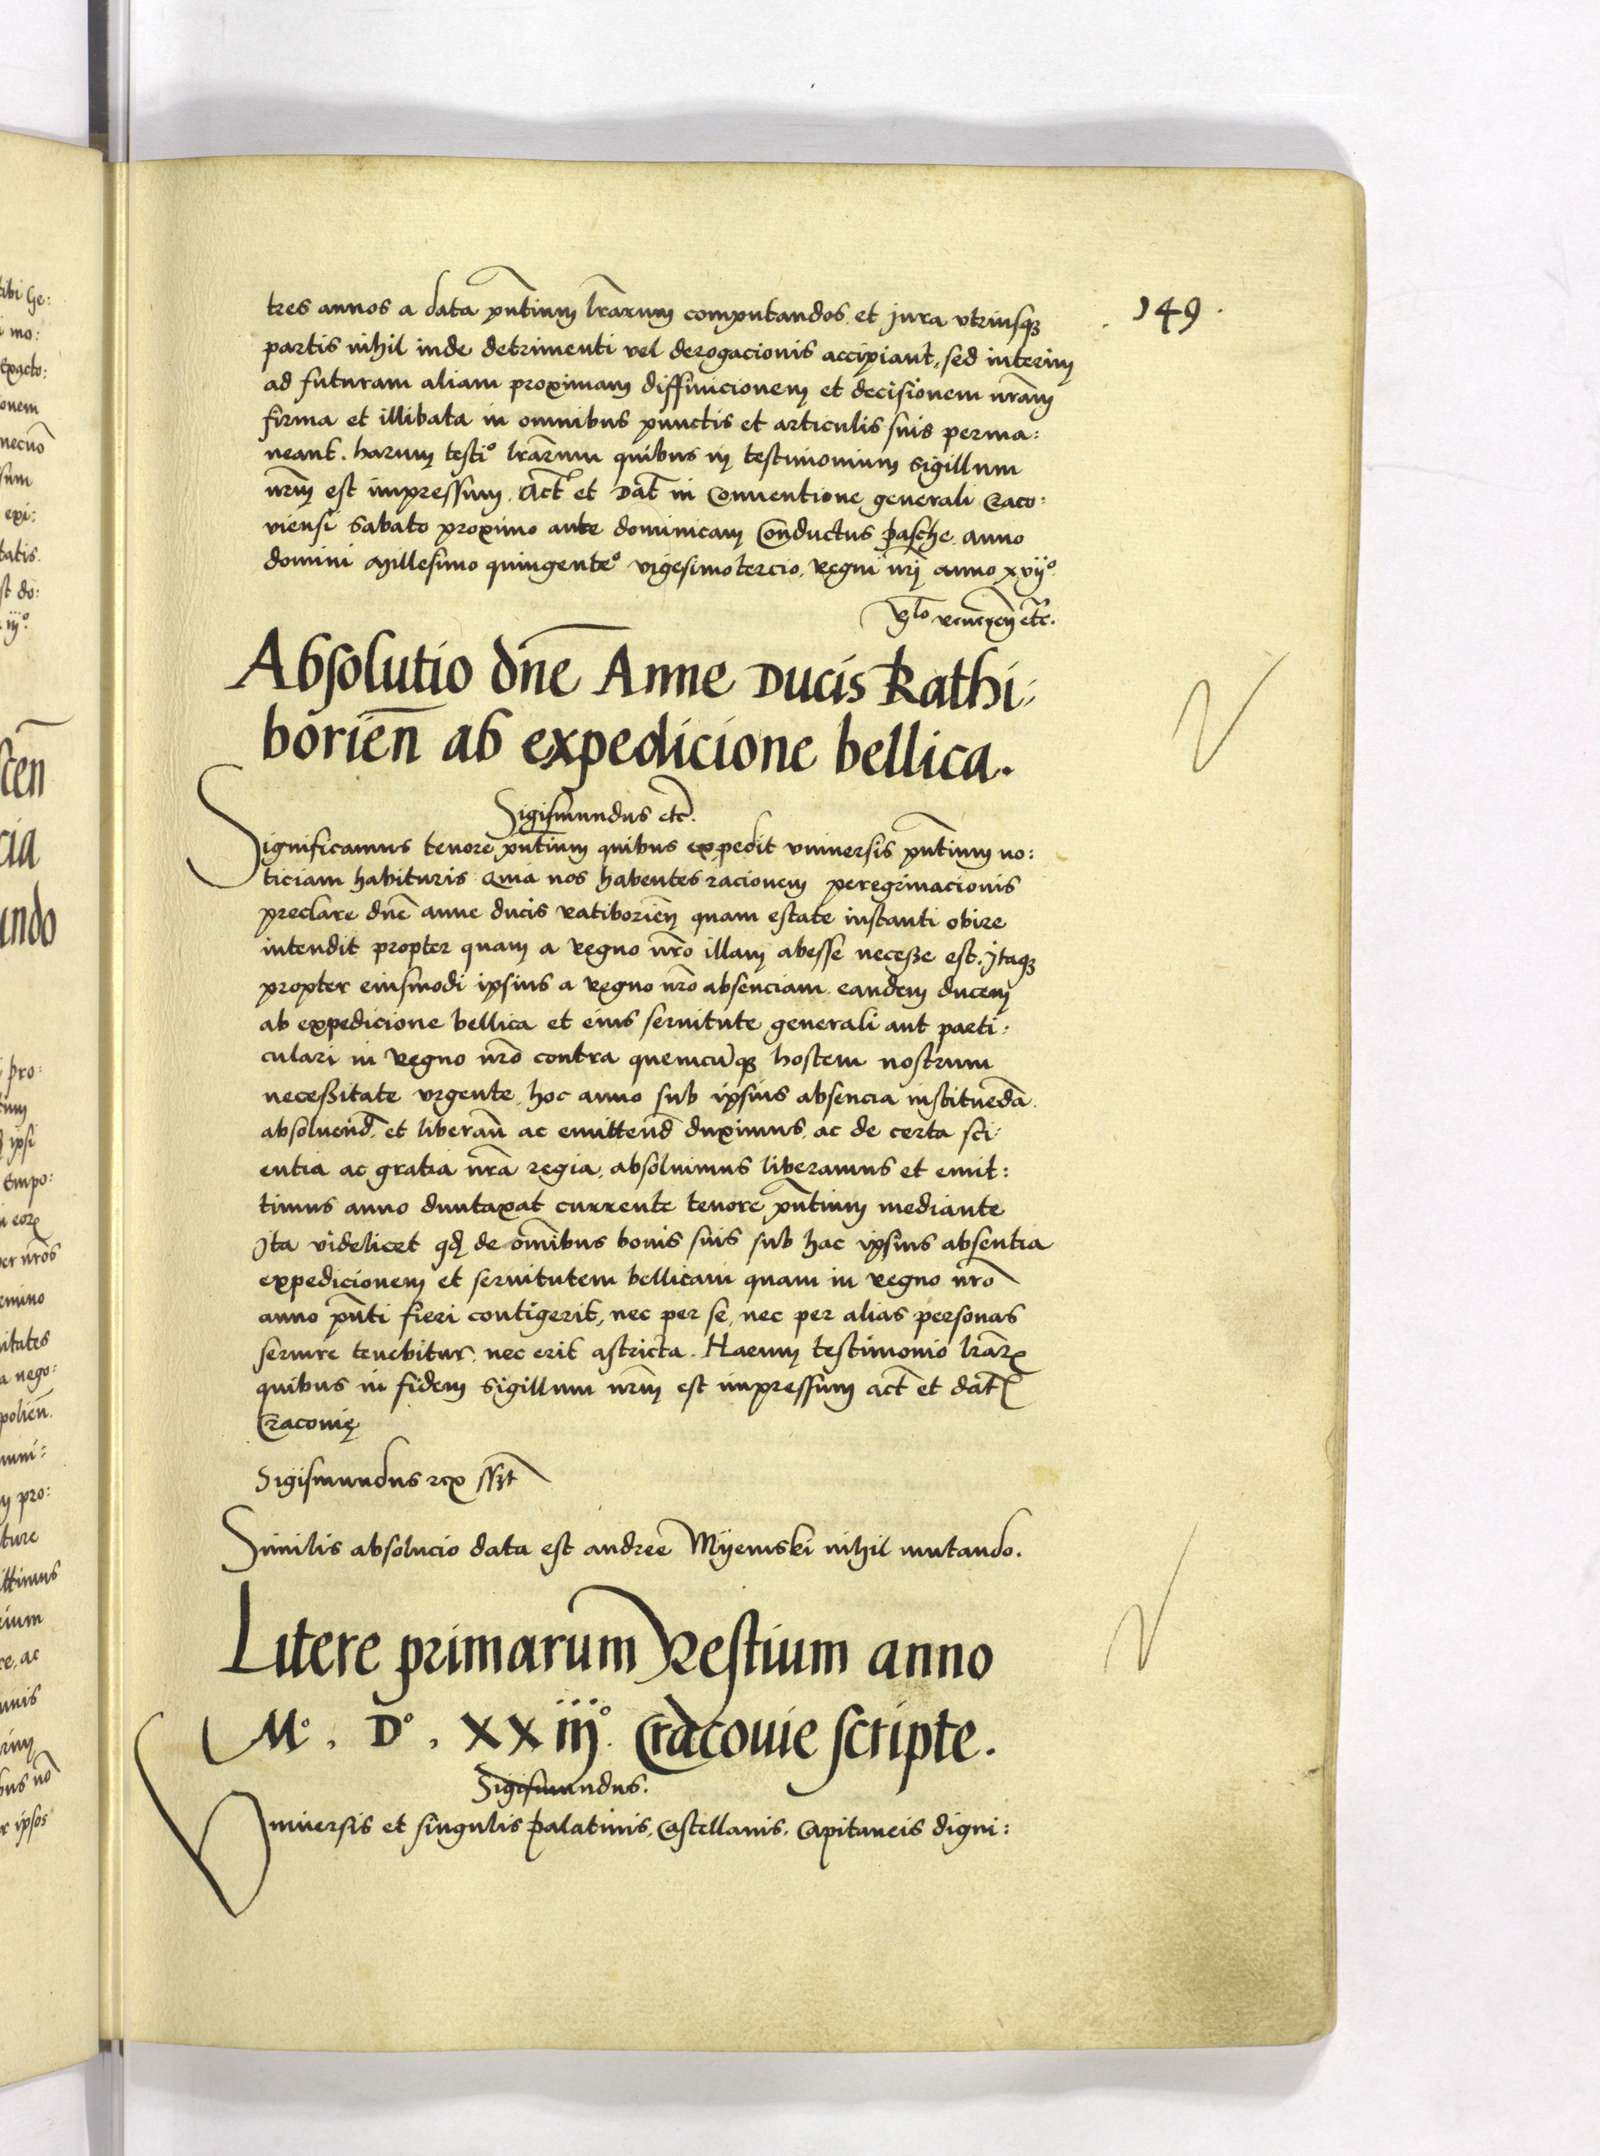 149.
tres annos a data pn̄tium lr̄arum computandos, et jura vtriusqꝫ
partis nihil inde detrimenti vel derogacionis accipiant, sed interim
ad futuram aliam proximam diffinicionem et decisionem nr̄am
firma et illibata in omnibus punctis et articulis suis perma:
neant. harum testi° lr̄arum quibus in testimonium sigillum
nr̄m est impressum. Act̄ et Dat̄ in Conuentione generali Craco:
viensi Sabato proximo ante dominicam Conductus pasche. anno
domini Millesimo quingente° vigesimotercio. Regni nr̄j anno xvij°.
Absolutio dn̄e Anne Ducis Rathi:
borien̄ ab expedicione bellica.
Sigismundus etc̄.
Significamus tenore pn̄tium quibus expedit vniuersis pn̄tium no:
ticiam habituris. Quia nos habentes racionem peregrinacionis
preclare dn̄e anne ducis ratiborien̄ quam estate instanti obire
intendit propter quam a Regno nr̄o illam abesse necesse est. Jtaqꝫ
propter eiusmodi ipsius a Regno nr̄o absenciam eandem ducem
ab expedicione bellica et eius seruitute generali aut parti:
culari in Regno nr̄o contra quemcūqꝫ hostem nostrum
necessitate vrgente, hoc anno sub ipsius absencia instituēda.
absoluend̄. et liberan̄ ac emittend̄ duximus, ac de certa sci:
entia ac gratia nr̄a regia, absoluimus liberamus et emit:
timus anno duntaxat currente tenore pn̄tium mediante
Jta videlicet qđ de om̄ibus bonis suis sub hac ipsius absentia
expedicionem et seruitutem bellicam quam in Regno nr̄o
anno pn̄ti fieri contigerit, nec per se, nec per alias personas
seruire tenebitur, nec erit astricta. Harum testimonio lr̄arꝝ
quibus in fidem sigillum nr̄m est impressum act̄ et dat̄
Cracouię
Sigismundus rex sszt̄
Similis absolucio data est andree Myemski nihil mutando.
Litere primarum Restium anno
M°. D°. XXiij°. Cracouie scripte.
Sigismundus.
Vniuersis et singulis palatinis, Castellanis, Capitaneis digni: